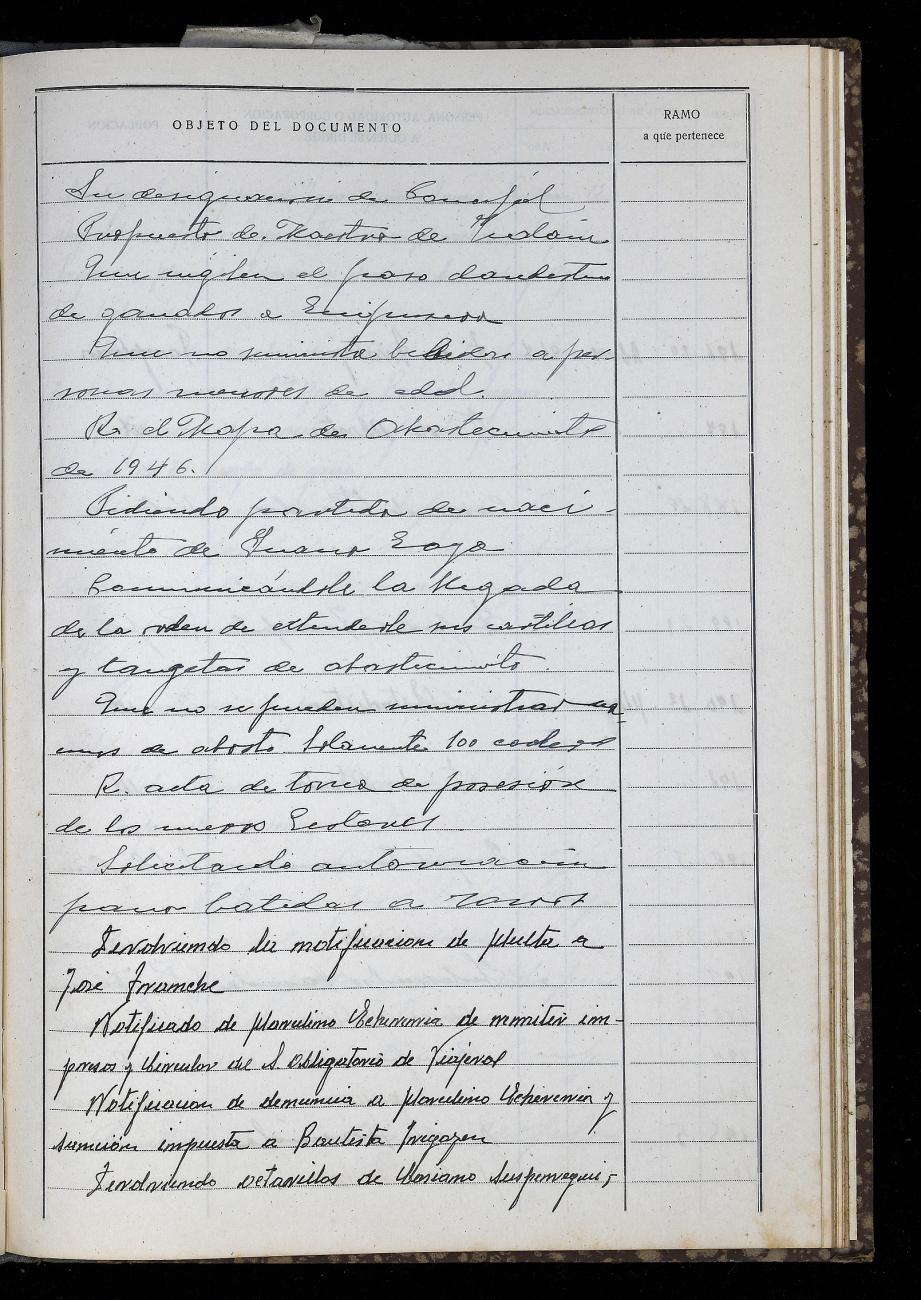 OBJETO DEL DOCUMENTO
RAMO
a que pertenece
Su designacion de Concejal
Propuesto de Maestro de
Que vigilen el paso clandestino
de ganados a
Que no suministre bebidas a per-
sonas menores de edad.
R. el Mapa de Abastecimiento
de 1946.
Pidiendo partida de naci-
miento de Juana Goya
Comunicándole la llegada
de la orden de extenderle sus cartillas
y targetas de abastecimiento.
Que no se pueden suministrar
de abasto Solamente 100
R. acta de toma de posesión
de los nuevos Gestores
Solicitando autorizacion
para batidas a zorros
Devolviendo la notificacion de Multa a
José
Notificado de Marcelino Echeverria de remitir im-
presos y Circular del S. Obligatorio de Viajeros
Notificacion de denuncia a Marcelino Echeverria y
sancion impuesta a Bautista Irigoyen
Devolviendo de